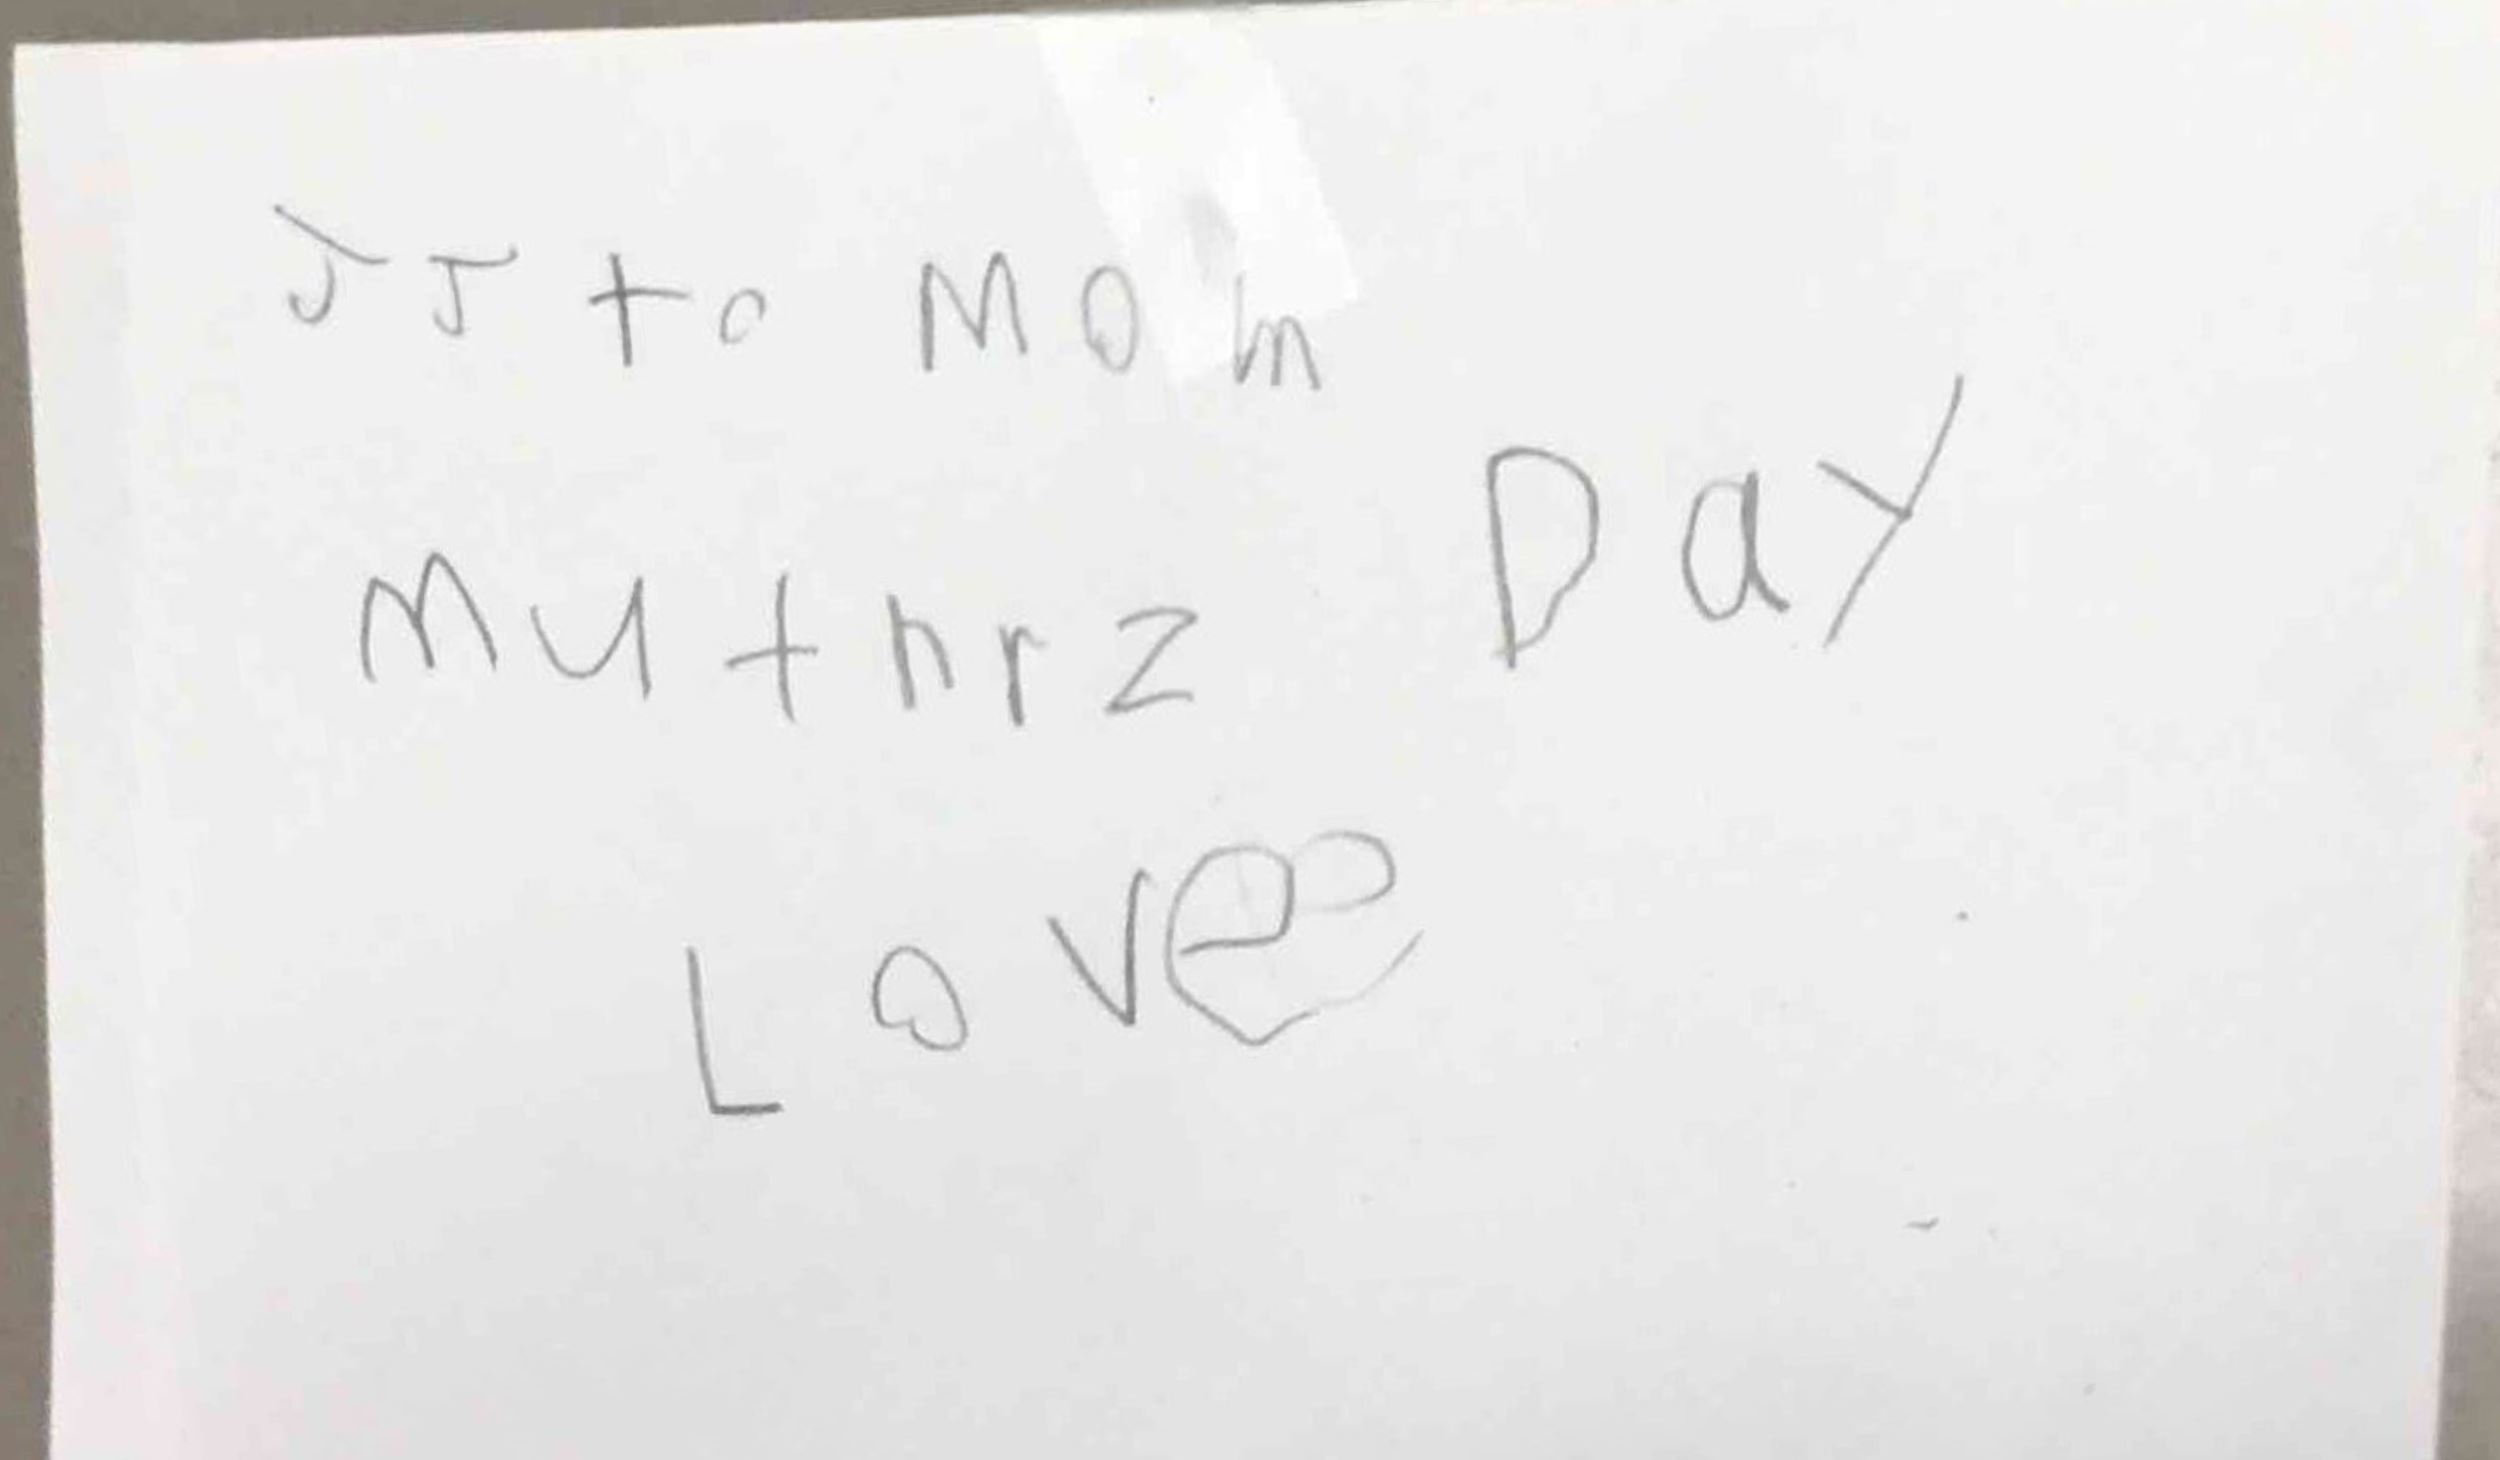 JJ to Mom
Muthrz Day
Love